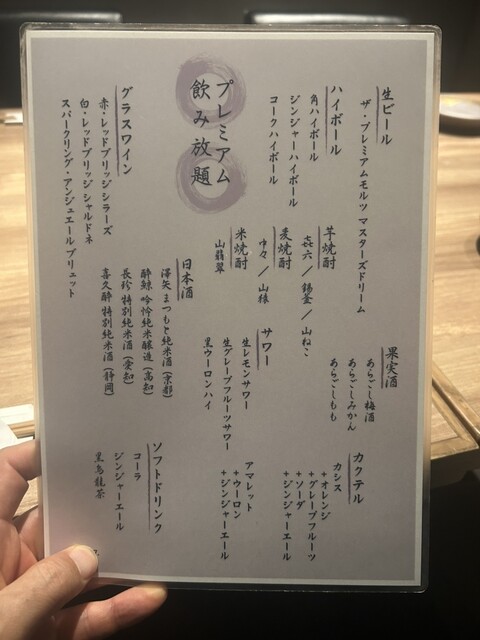 プレミアム
飲み放題
生ビール
ザ・プレミアムモルツ マスターズドリーム
ハイボール
角ハイボール
ジンジャーハイボール
コークハイボール
グラスワイン
赤・レッドブリッジ シラーズ
白・レッドブリッジ シャルドネ
スパークリング・アンジュエール ブリュット
芋焼酎
㐂六 / 錫釜 / 山ねこ
麦焼酎
中々 / 山猿
米焼酎
山翡翠
日本酒
澤矢 まつもと純米酒 (京都)
酔鯨 吟怜純米醸造 (高知)
長珍 特別純米酒 (愛知)
喜久酔 特別純米酒 (静岡)
果実酒
あらごし梅酒
あらごしみかん
あらごしもも
サワー
生レモンサワー
生グレープフルーツサワー
黒ウーロンハイ
カクテル
カシス
+オレンジ
+グレープフルーツ
+ソーダ
+ジンジャーエール
アマレット
+ウーロン
+ジンジャーエール
ソフトドリンク
コーラ
ジンジャーエール
黒烏龍茶